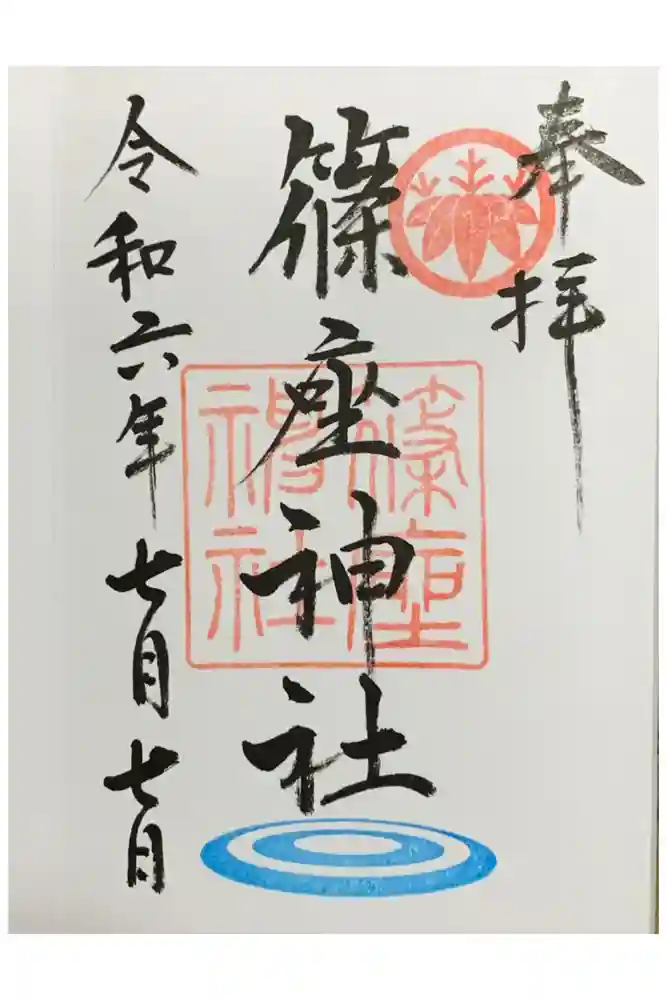 奉拝
篠座神社
篠座
神社
令和六年七月七日